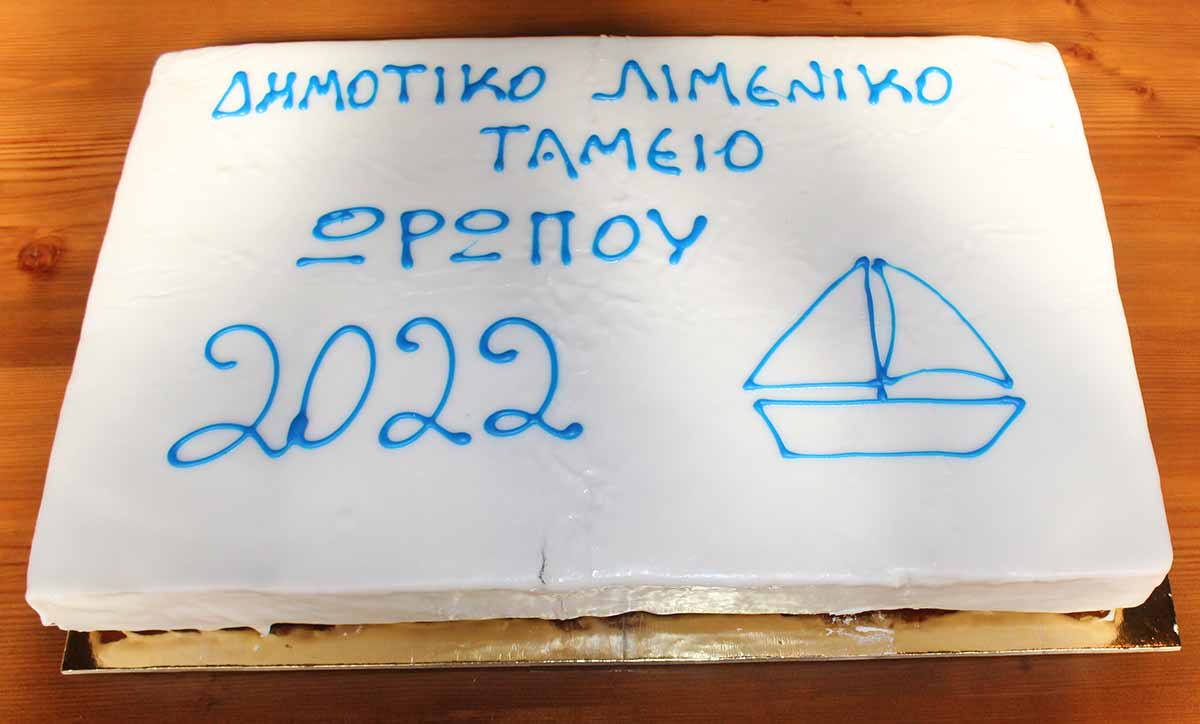 ΔΗΜΟΤΙΚΟ ΛΙΜΕΝΙΚΟ
ΤΑΜΕΙΟ
ΩΡΩΠΟΥ
2022